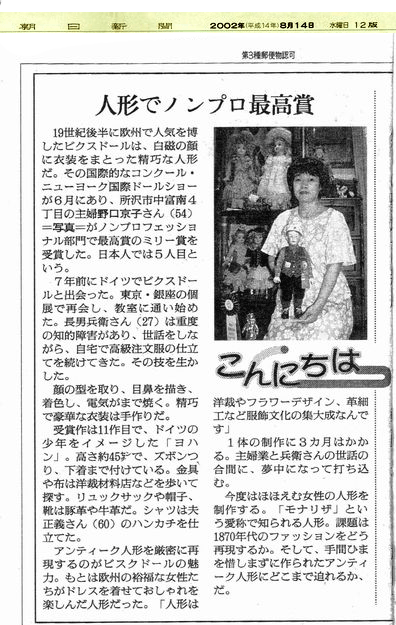 朝日新聞
2002年(平成14年)8月14日 水曜日 12版
第3種郵便物認可
人形でノンプロ最高賞
19世紀後半に欧州で人気を博
したビクスドールは、白磁の顔
に衣装をまとった精巧な人形
だ。その国際的なコンクール・
ニューヨーク国際ドールショー
が6月にあり、所沢市中富南4
丁目の主婦野口京子さん(54)
=写真=がノンプロフェッショ
ナル部門で最高賞のミリー賞を
受賞した。日本人では5人目と
いう。
7年前にドイツでビクスドー
ルと出会った。東京・銀座の個
展で再会し、教室に通い始め
た。長男兵衛さん(27)は重度
の知的障害があり、世話をしな
がら、自宅で高級注文服の仕立
てを続けてきた。その技を生か
した。
顔の型を取り、目鼻を描き、
着色し、電気がまで焼く。精巧
で豪華な衣装は手作りだ。
受賞作は11作目で、ドイツの
少年をイメージした「ヨハ
ン」。高さ約45㌢で、ズボンつ
り、下着まで付けている。金具
や布は洋裁材料店などを歩いて
探す。リュックサックや帽子、
靴は豚革や牛革だ。シャツは夫
正義さん(60)のハンカチを仕
立てた。
アンティーク人形を厳密に再
現するのがビスクドールの魅
力。もとは欧州の裕福な女性た
ちがドレスを着せておしゃれを
楽しんだ人形だった。「人形は
こんにちは
洋裁やフラワーデザイン、革細
工など服飾文化の集大成なんで
す」
1体の制作に3カ月はかか
る。主婦業と兵衛さんの世話の
合間に、夢中になって打ち込
む。
今度はほほえむ女性の人形を
制作する。「モナリザ」とい
う愛称で知られる人形。課題は
1870年代のファッションをどう
再現するか。そして、手間ひま
を惜しまずに作られたアンティ
ーク人形にどこまで迫れるか、
だ。